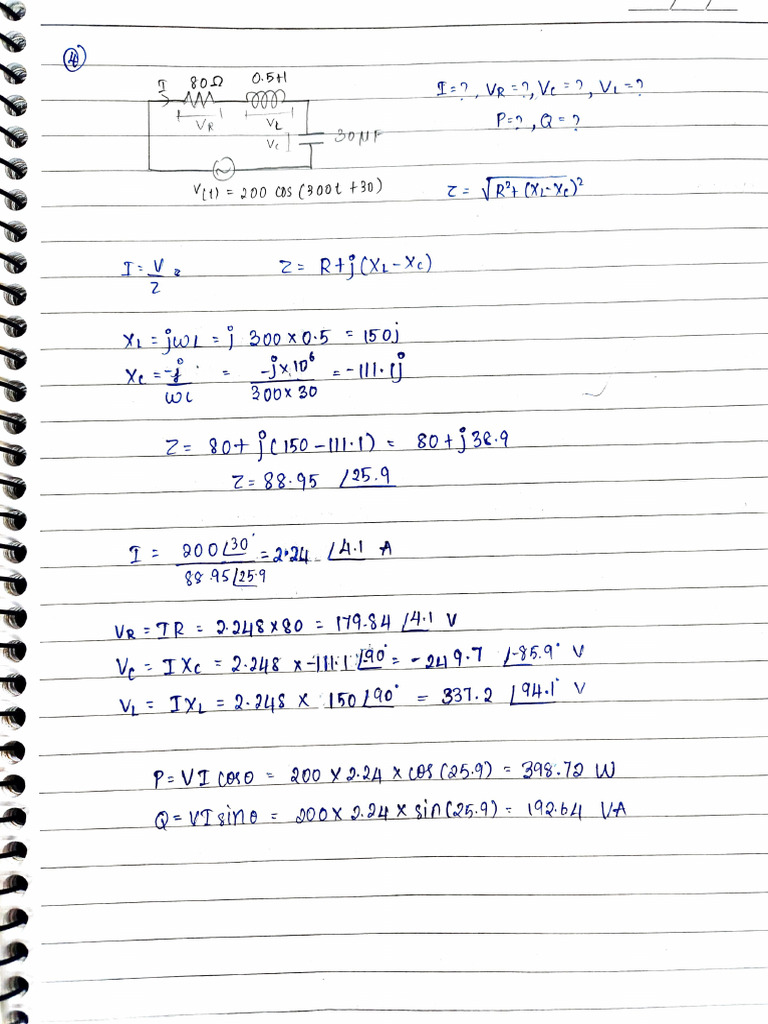 4
I 80Ω 0.5H
VR VL
Vc 30µF
V(t) = 200 cos (300t +30)
I=?, VR=?, Vc=?, VL=?
P=?, Q=?
Z = √R²+(XL-Xc)²
I = V/Z
Z = R+j(XL-Xc)
XL = jωL = j 300×0.5 = 150j
Xc = -j/ωc = -j×10⁶/300×30 = -111.1j
Z = 80+ j(150-111.1) = 80+j38.9
Z= 88.95 ∠25.9
I = 200∠30°/88.95∠25.9 = 2.24 ∠4.1 A
VR = IR = 2.248×80 = 179.84 ∠4.1 V
Vc = IXc = 2.248 ×-111.1∠90° = -249.7 ∠-85.9° V
VL = IXL = 2.248 × 150∠90° = 337.2 ∠94.1° V
P=VI cosθ = 200×2.24×cos(25.9) = 398.72 W
Q=VI sinθ = 200×2.24×sin(25.9) = 192.64 VA